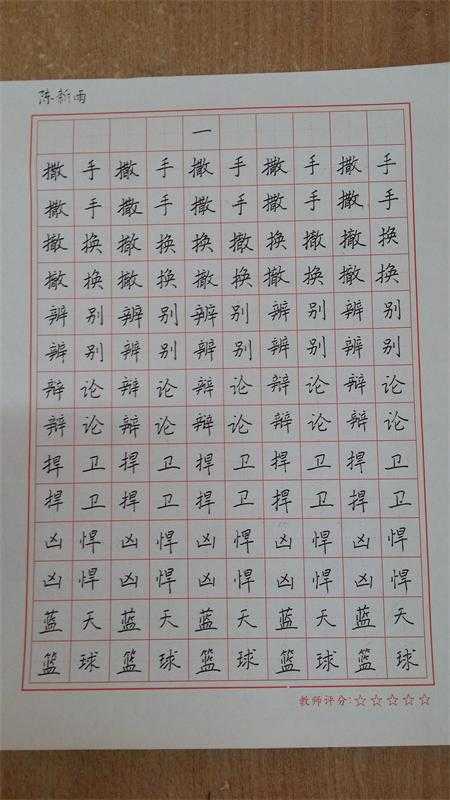 陈新雨
一
撒手撒手撒手撒手撒手
撒手撒手撒手撒手撒手
撤换撤换换撤换撤撤换
撤换撤换撤换撤换撤换
辨别辨别辨别辨别辨别
辨别辨别辨别辨别辨别
辩论辩论辩论辩论辩论
辩论辩论辩论辩论辩论
捍卫捍卫捍卫捍卫捍卫
捍卫捍卫捍卫捍卫捍卫
凶悍凶悍凶悍凶悍凶悍
凶悍凶悍凶悍凶悍凶悍
蓝天蓝天蓝天蓝天蓝天
篮球篮球篮球篮球篮球
教师评分:☆☆☆☆☆